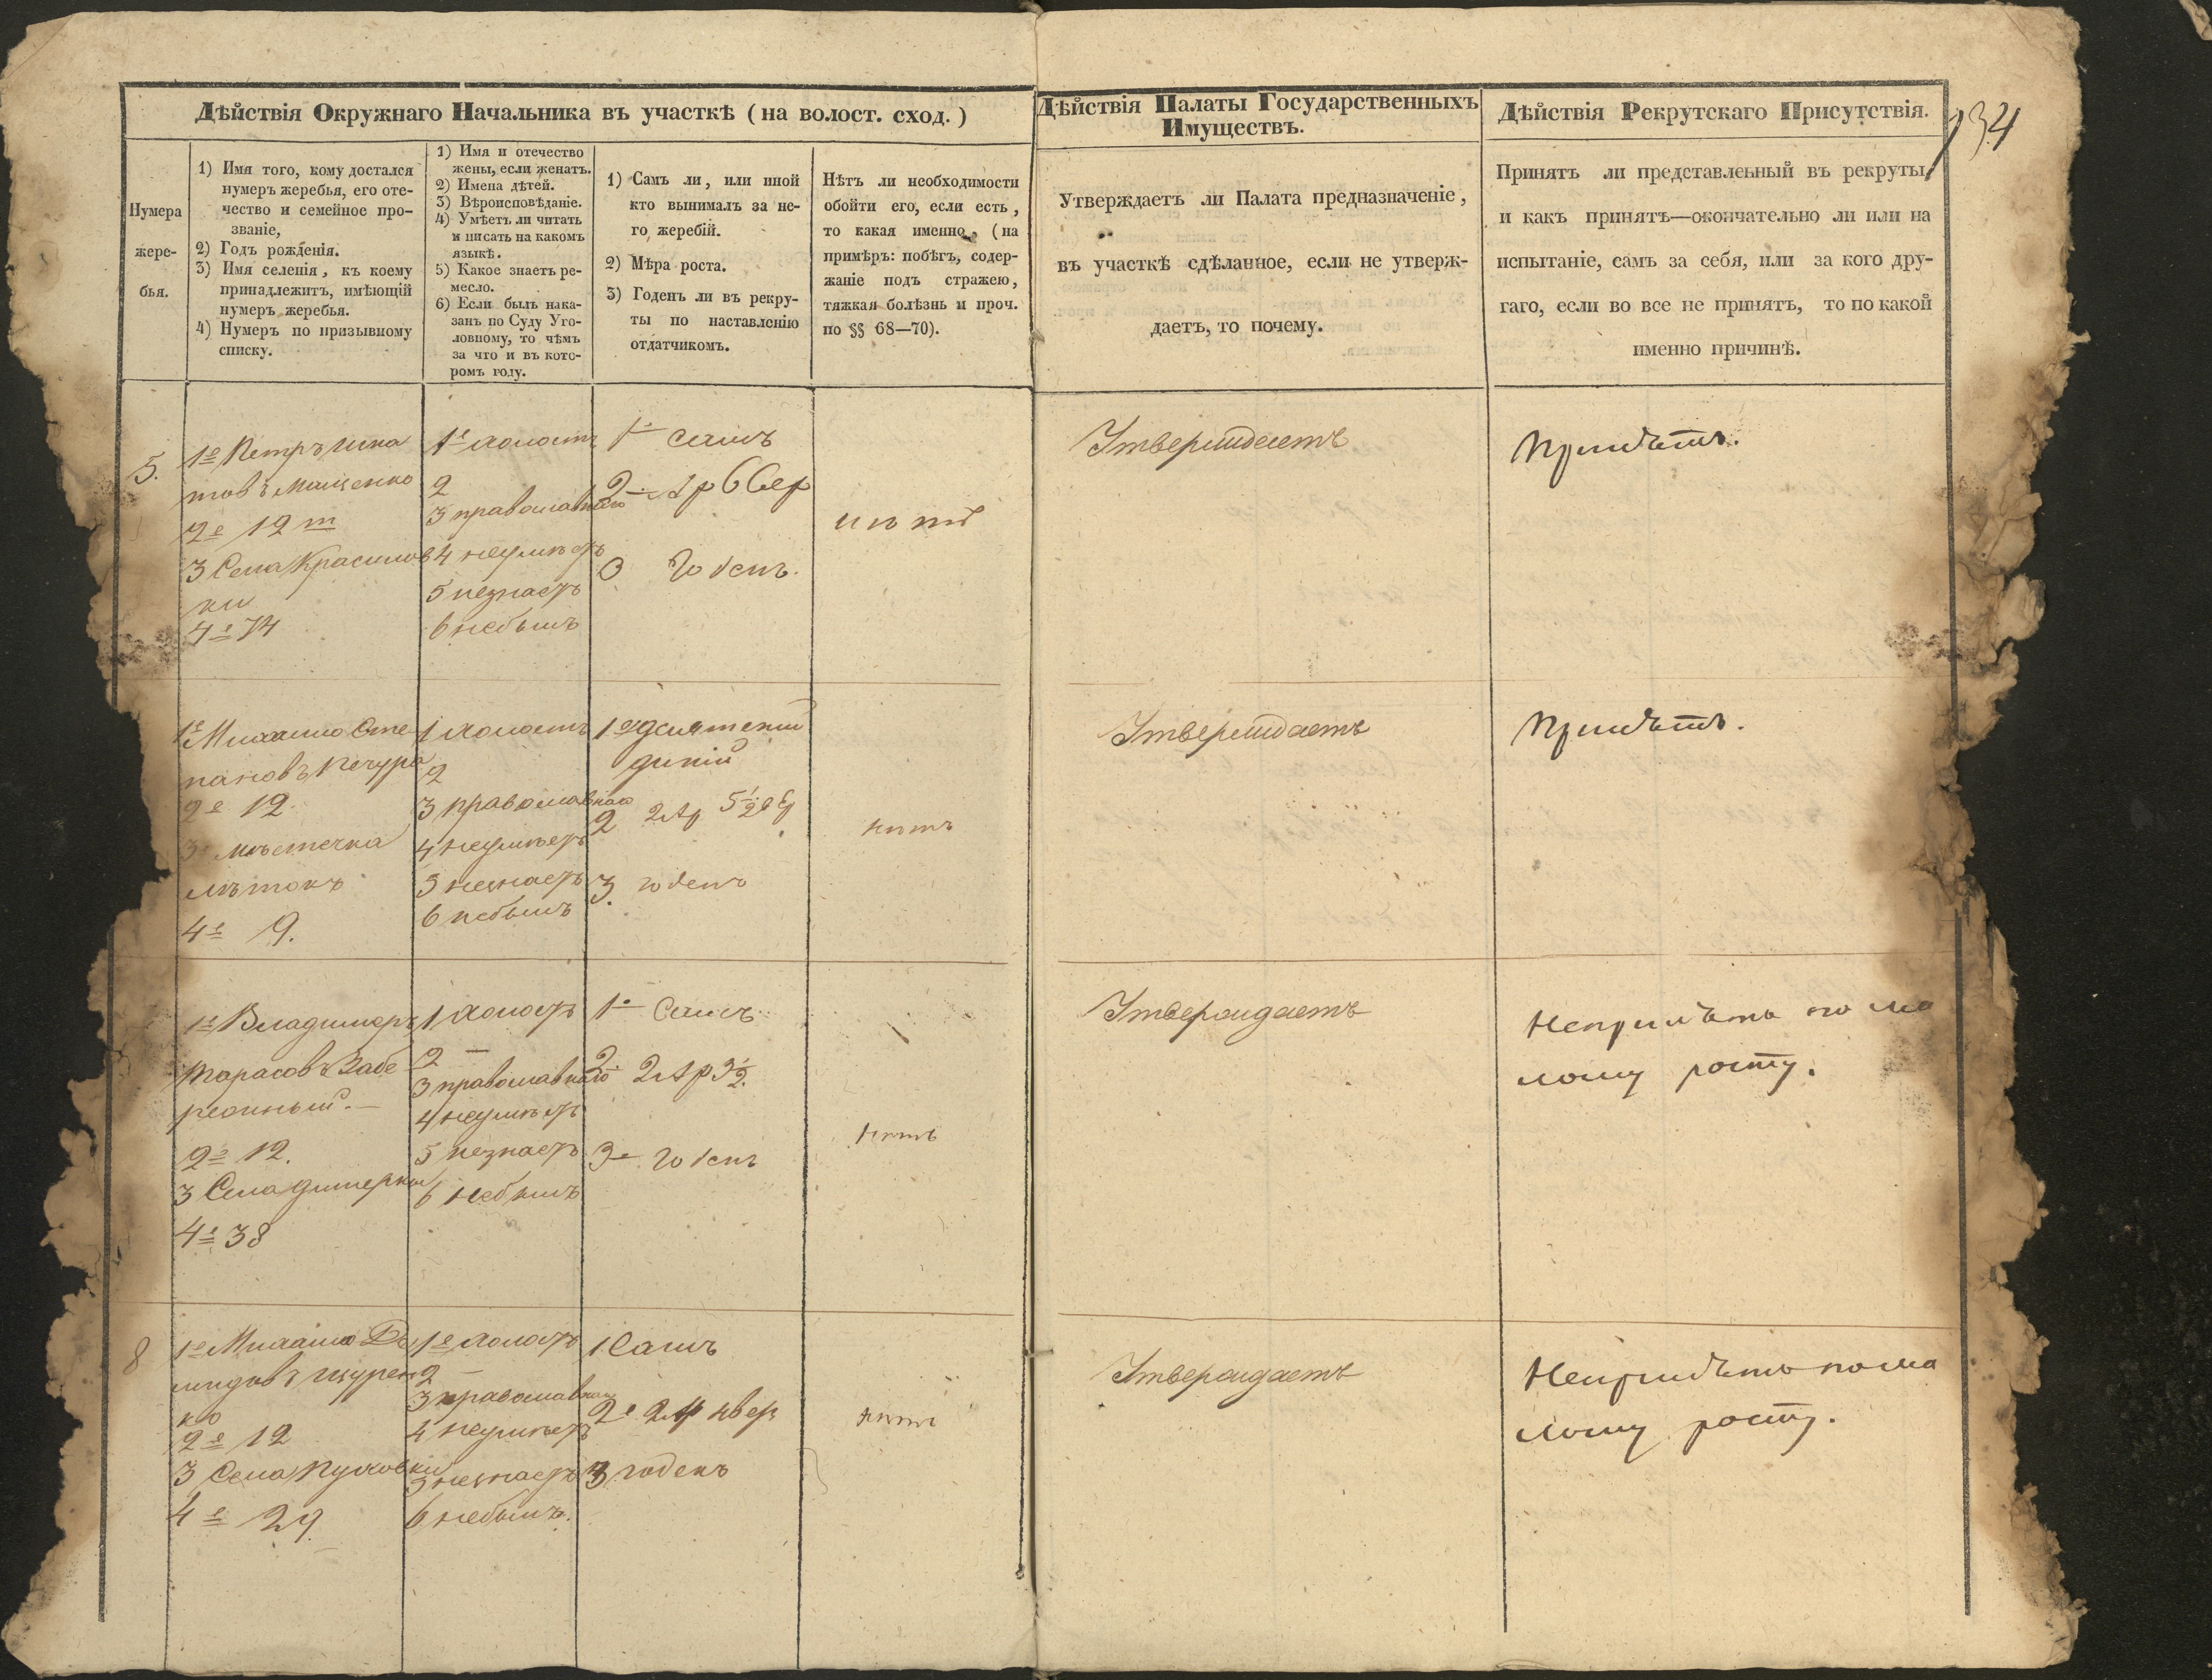 Дѣйствія Окружнаго Начальника въ участкѣ (на волост. сход.)
Нумера
жере-
бья.
1) Имя того, кому достался
нумеръ жеребья, его оте-
чество и семейное про-
званіе,
2) Годъ рожденія.
3) Имя селенія, къ коему
принадлежитъ, имѣющій
нумеръ жеребья.
4) Нумеръ по призывному
списку.
1) Имя и отечество
жены, если женатъ.
2) Имена дѣтей.
3) Вѣроисповѣданіе.
4) Умѣетъ ли читать
и писать на какомъ
языкѣ.
5) Какое знаетъ ре-
месло.
6) Если былъ нака-
занъ по Суду Уго-
ловному, то чѣмъ
за что и въ кото-
ромъ году.
1) Самъ ли, или иной
кто вынималъ за не-
го жеребій.
2) Мѣра роста.
3) Годенъ ли въ рекру-
ты по наставленію
отдатчикомъ.
Нѣтъ ли необходимости
обойти его, если есть,
то какая именно, (на
примѣръ: побѣгъ, содер-
жаніе подъ стражею,
тяжкая болѣзнь и проч.
по §§ 68—70).
Дѣйствія Палаты Государственныхъ
Имуществъ.
Утверждаетъ ли Палата предназначеніе,
въ участкѣ сдѣланное, если не утверж-
даетъ, то почему.
Дѣйствія Рекрутскаго Присутствія.
134
Принятъ ли представленный въ рекруты
и какъ принятъ—окончательно ли или на
испытаніе, самъ за себя, или за кого дру-
гаго, если во все не принятъ, то по какой
именно причинѣ.
5.
1е Петръ Игна
товъ Мащенко
2е 19 т
3 Села Красилов
ки
4е 74
1е холостъ
2
3 православнаго
4 неумѣетъ
5 незнаетъ
6 небылъ
1е самъ
2 Ар 6 вер
3 Годенъ.
нѣтъ
Утверждаетъ
Принятъ.
1е Михайло Сте
пановъ Печура
2е 19.
3 мѣстечка
Лѣтокъ
4е 9.
1 холостъ
2
3 православнаго
4 неумѣетъ
5 незнаетъ
6 небылъ
1е десятскій
дикій
2 2 Ар 5½ вер
3. годенъ
нѣтъ
Утверждаетъ
Принятъ.
1е Владимеръ
Тарасовъ Забе
2е 19.
3 Села Димерки
4е 38
1 холостъ
2 —
3 православнаго
4 неумѣетъ
5 незнаетъ
6 небылъ
1е Самъ
2 2 Ар 3½.
3е годенъ
нѣтъ
Утверждаетъ
Непринятъ по ма
лому росту.
8
1е Михайло Де
мидовъ Щурен
ко
2е 19
3 Села Пуховки
4е 29.
1е холостъ
2 —
3 православнаго
4 неумѣетъ
5 незнаетъ
6 небылъ.
1 Самъ
2е 2 Ар 4 вер
3 годенъ
нѣтъ
Утверждаетъ
Непринятъ по ма
лому росту.